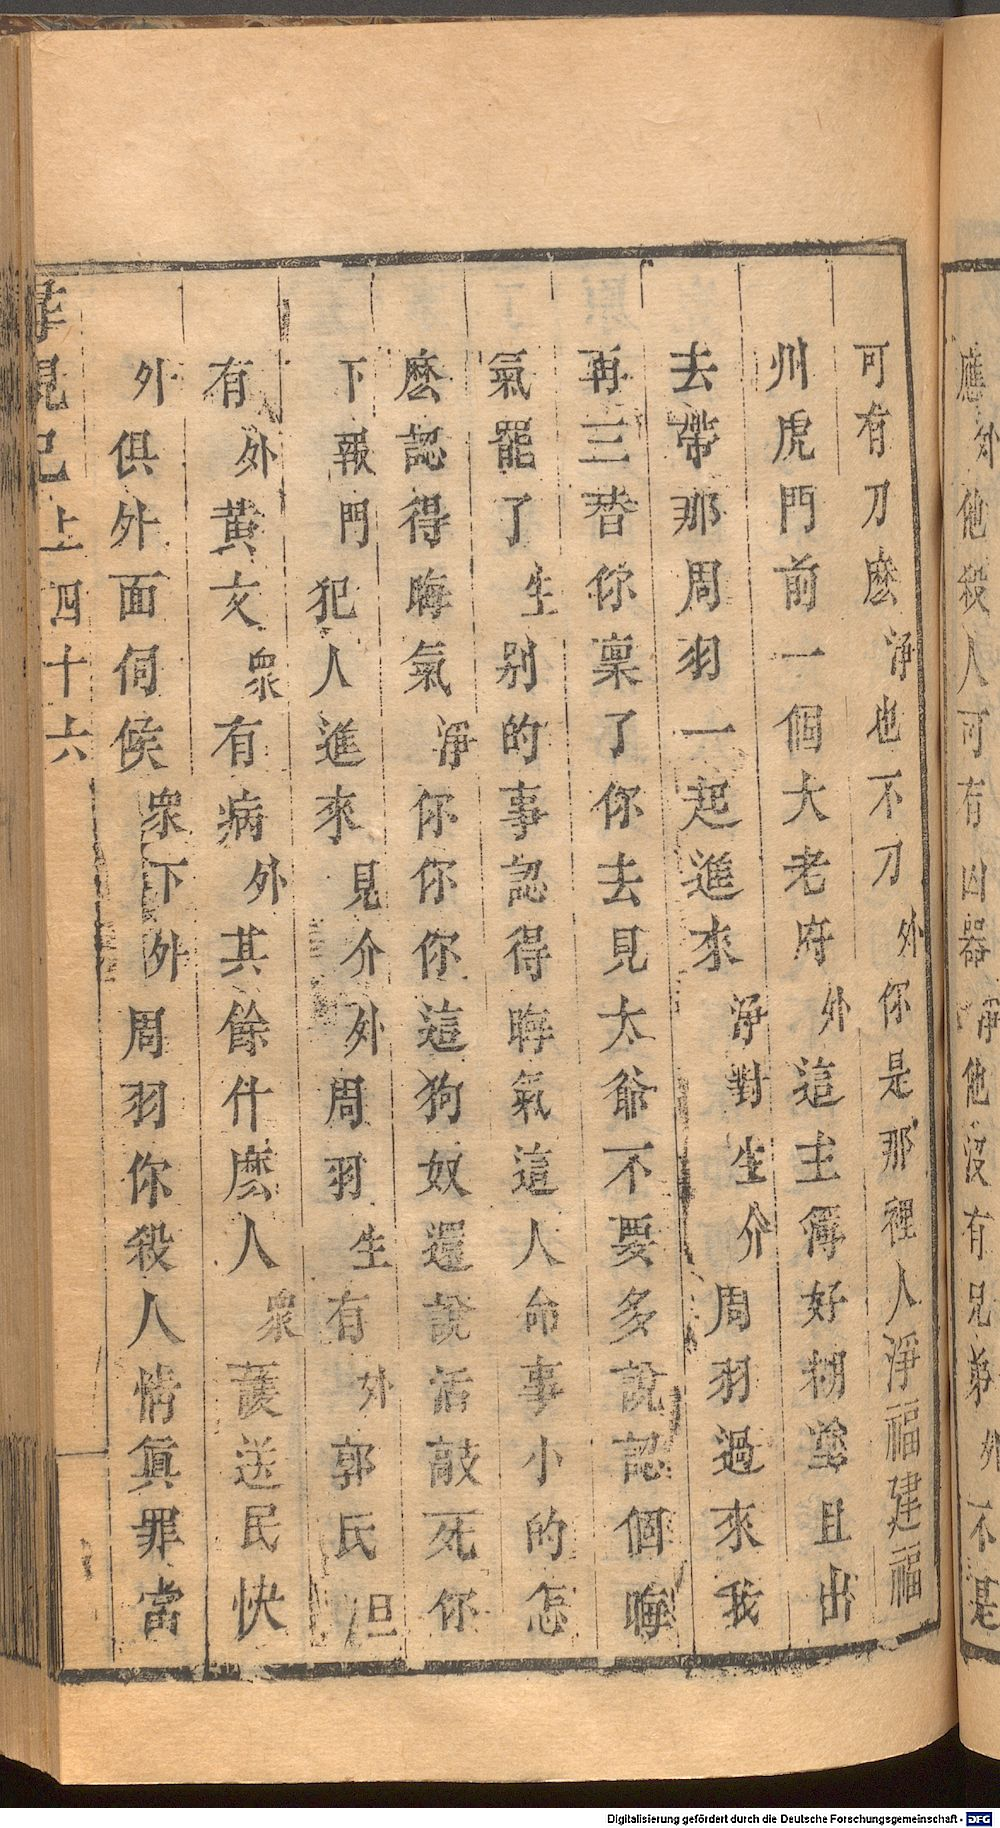 應外他殺人可有凶器淨他沒有兄弟外不是
可有刀麽淨也不刀外你是那裡人淨福建福
州虎門前一個大老府外這主得好糊塗且出
去帶那周羽一起進來淨對生介周羽過來我
再三替你稟了你去見太爺不要多說認個晦
氣罷了生别的事認得晦氣這人命事小的怎
麽認得晦氣淨你你你這狗奴還說活敲死你
下報門犯人進來見介外周羽生有外郭氏旦
有外黄文衆有病外其餘什麽人衆護送民快
外俱外面伺候衆下外周羽你殺人情眞罪當
尋親記上四十六
Digitalisierung gefördert durch die Deutsche Forschungsgemeinschaft - DFG